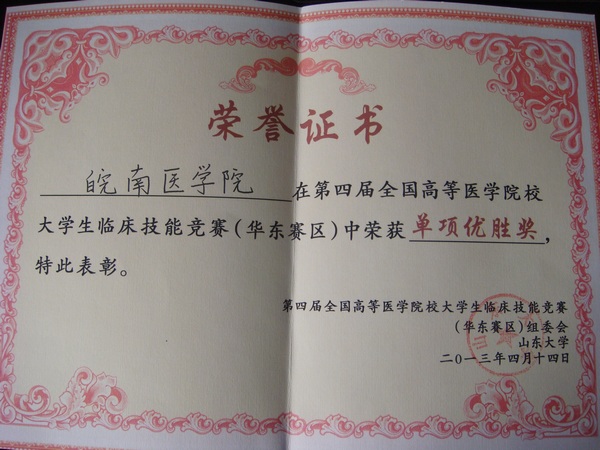 荣誉证书
皖南医学院 在第四届全国高等医学院校
大学生临床技能竞赛(华东赛区)中荣获 单项优胜奖,
特此表彰。
第四届全国高等医学院校大学生临床技能竞赛
(华东赛区)组委会
山东大学
二〇一三年四月十四日